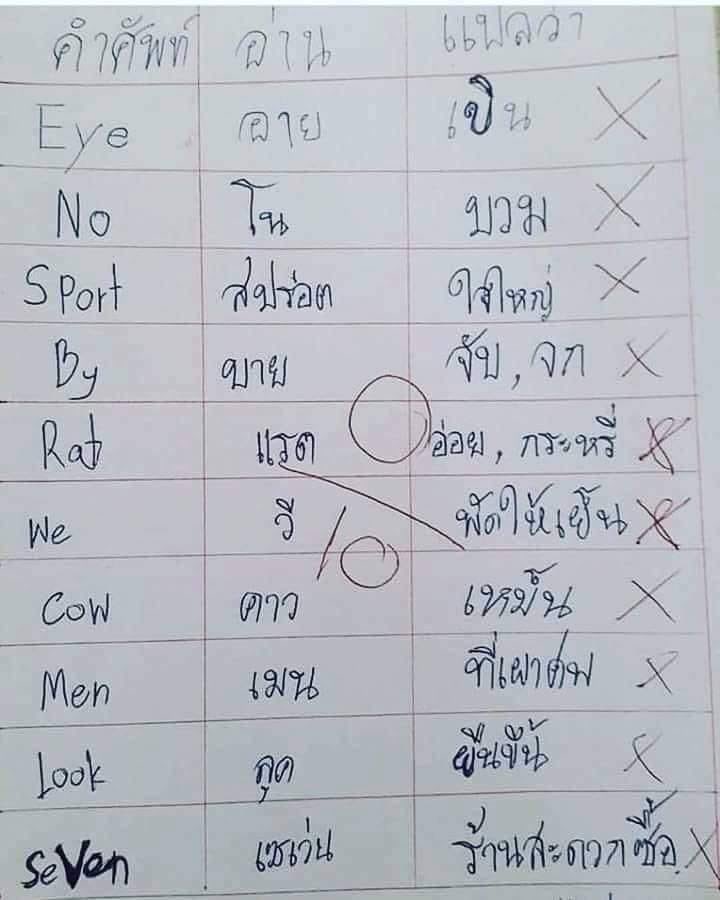 คำศัพท์ อ่าน แปลว่า
Eye อาย เขิน X
No โน บวม X
Sport สปร่อต ใจใหญ่ X
By บาย จับ, จก X
Rat แรต อ่อย, กระหรี่ X
0/10
We วี พัดให้เย็น X
Cow คาว เหม็น X
Men เมน ที่เผาศพ X
Look ลุค ยืนขึ้น X
Seven เซเว่น ร้านสะดวกซื้อ X